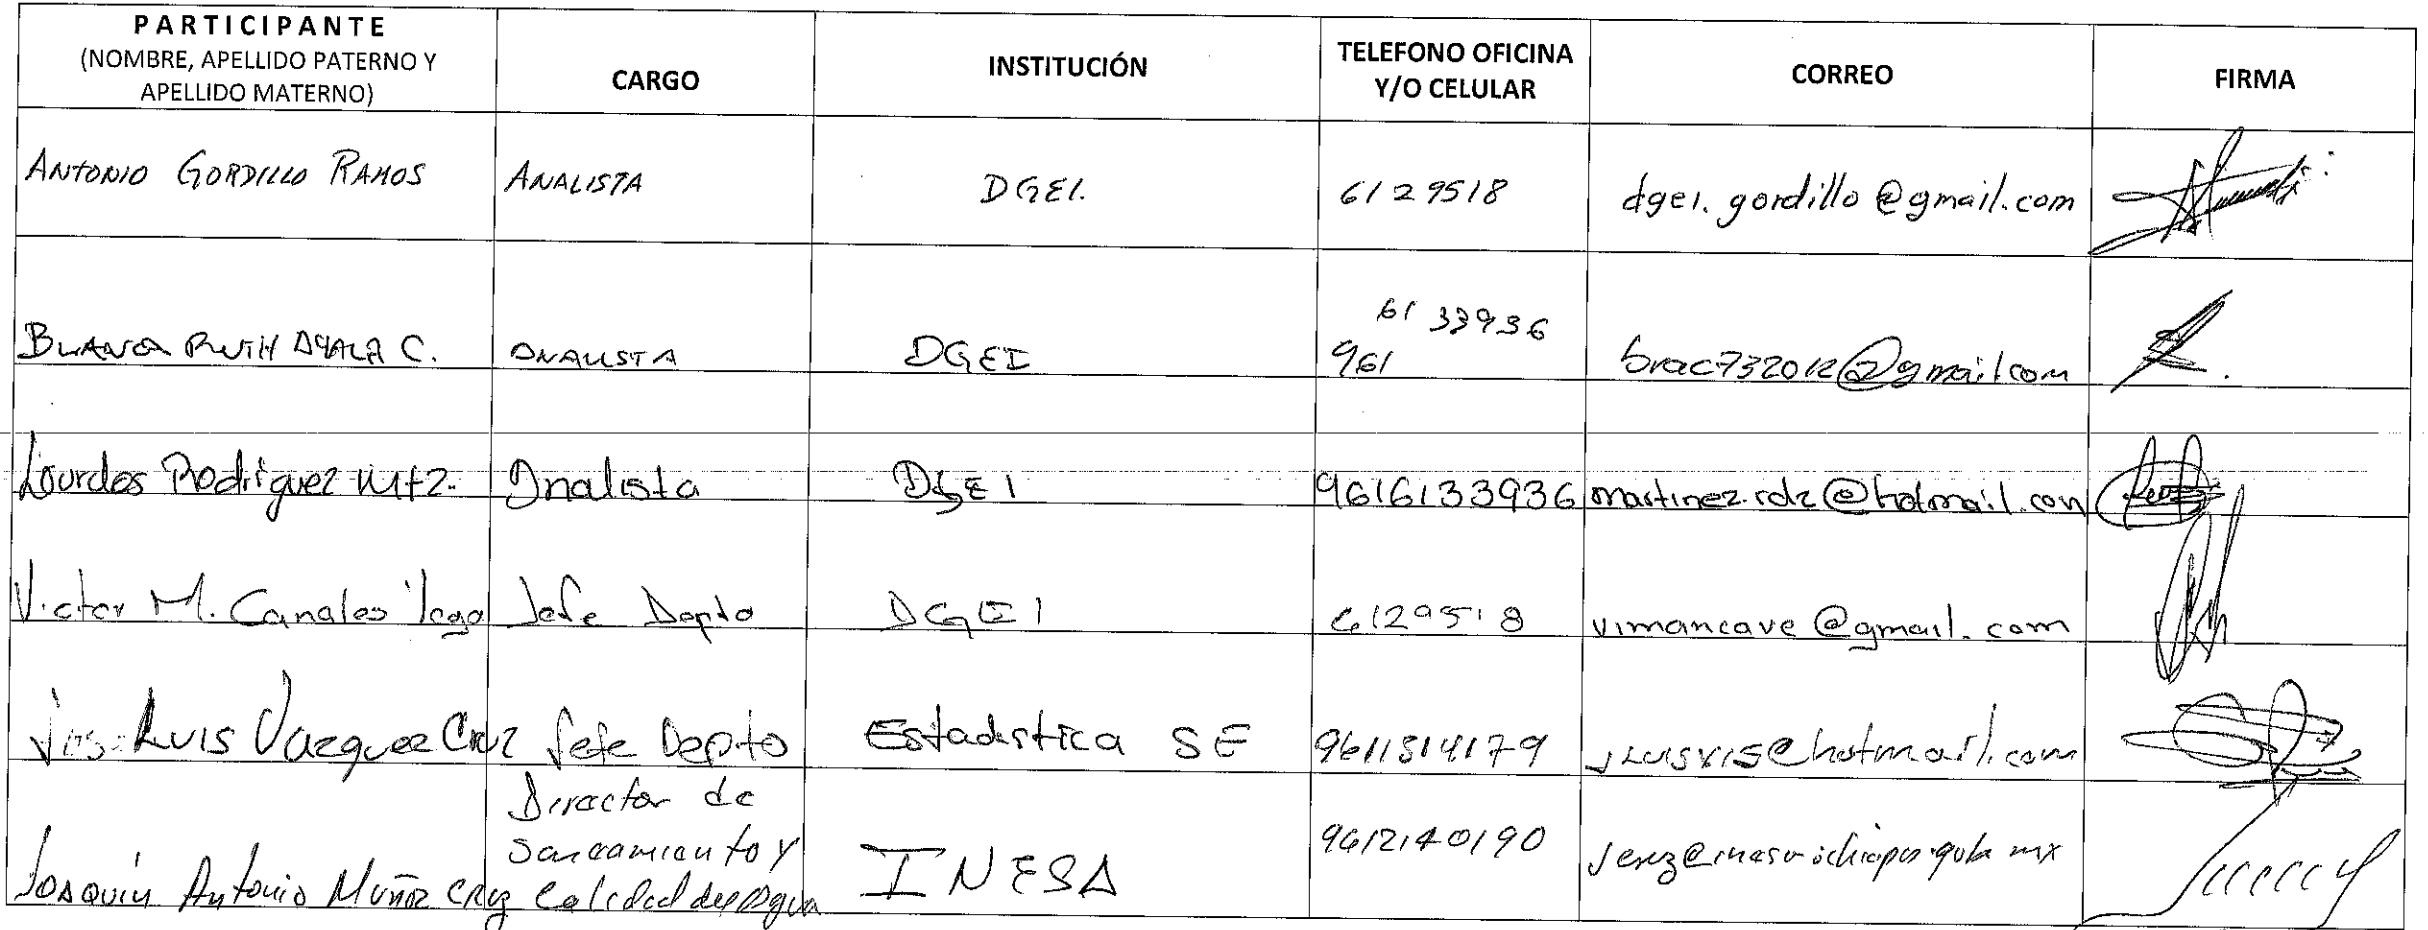 PARTICIPANTE
(NOMBRE, APELLIDO PATERNO Y
APELLIDO MATERNO)
CARGO
INSTITUCIÓN
TELEFONO OFICINA
Y/O CELULAR
CORREO
FIRMA
ANTONIO GORDILLO RAMOS
ANALISTA
DGEI.
6129518
dgei.gordillo@gmail.com
BLANCA RUTH AYALA C.
ANALISTA
DGEI
61 33936
961
brac732012@gmail.com
Lourdes Rodriguez Mtz.
Analista
DGEI
9616133936
martinez.rdz@hotmail.com
Victor M. Canales
Jefe Depto
DGEI
6129518
vimancave@gmail.com
Jose Luis Vazquez Cruz
Jefe Depto
Estadistica SE
9611514179
@hotmail.com
Joaquin Antonio Muñoz Cruz
Director de
Saneamiento y
Calidad del Agua
INESA
9612140190